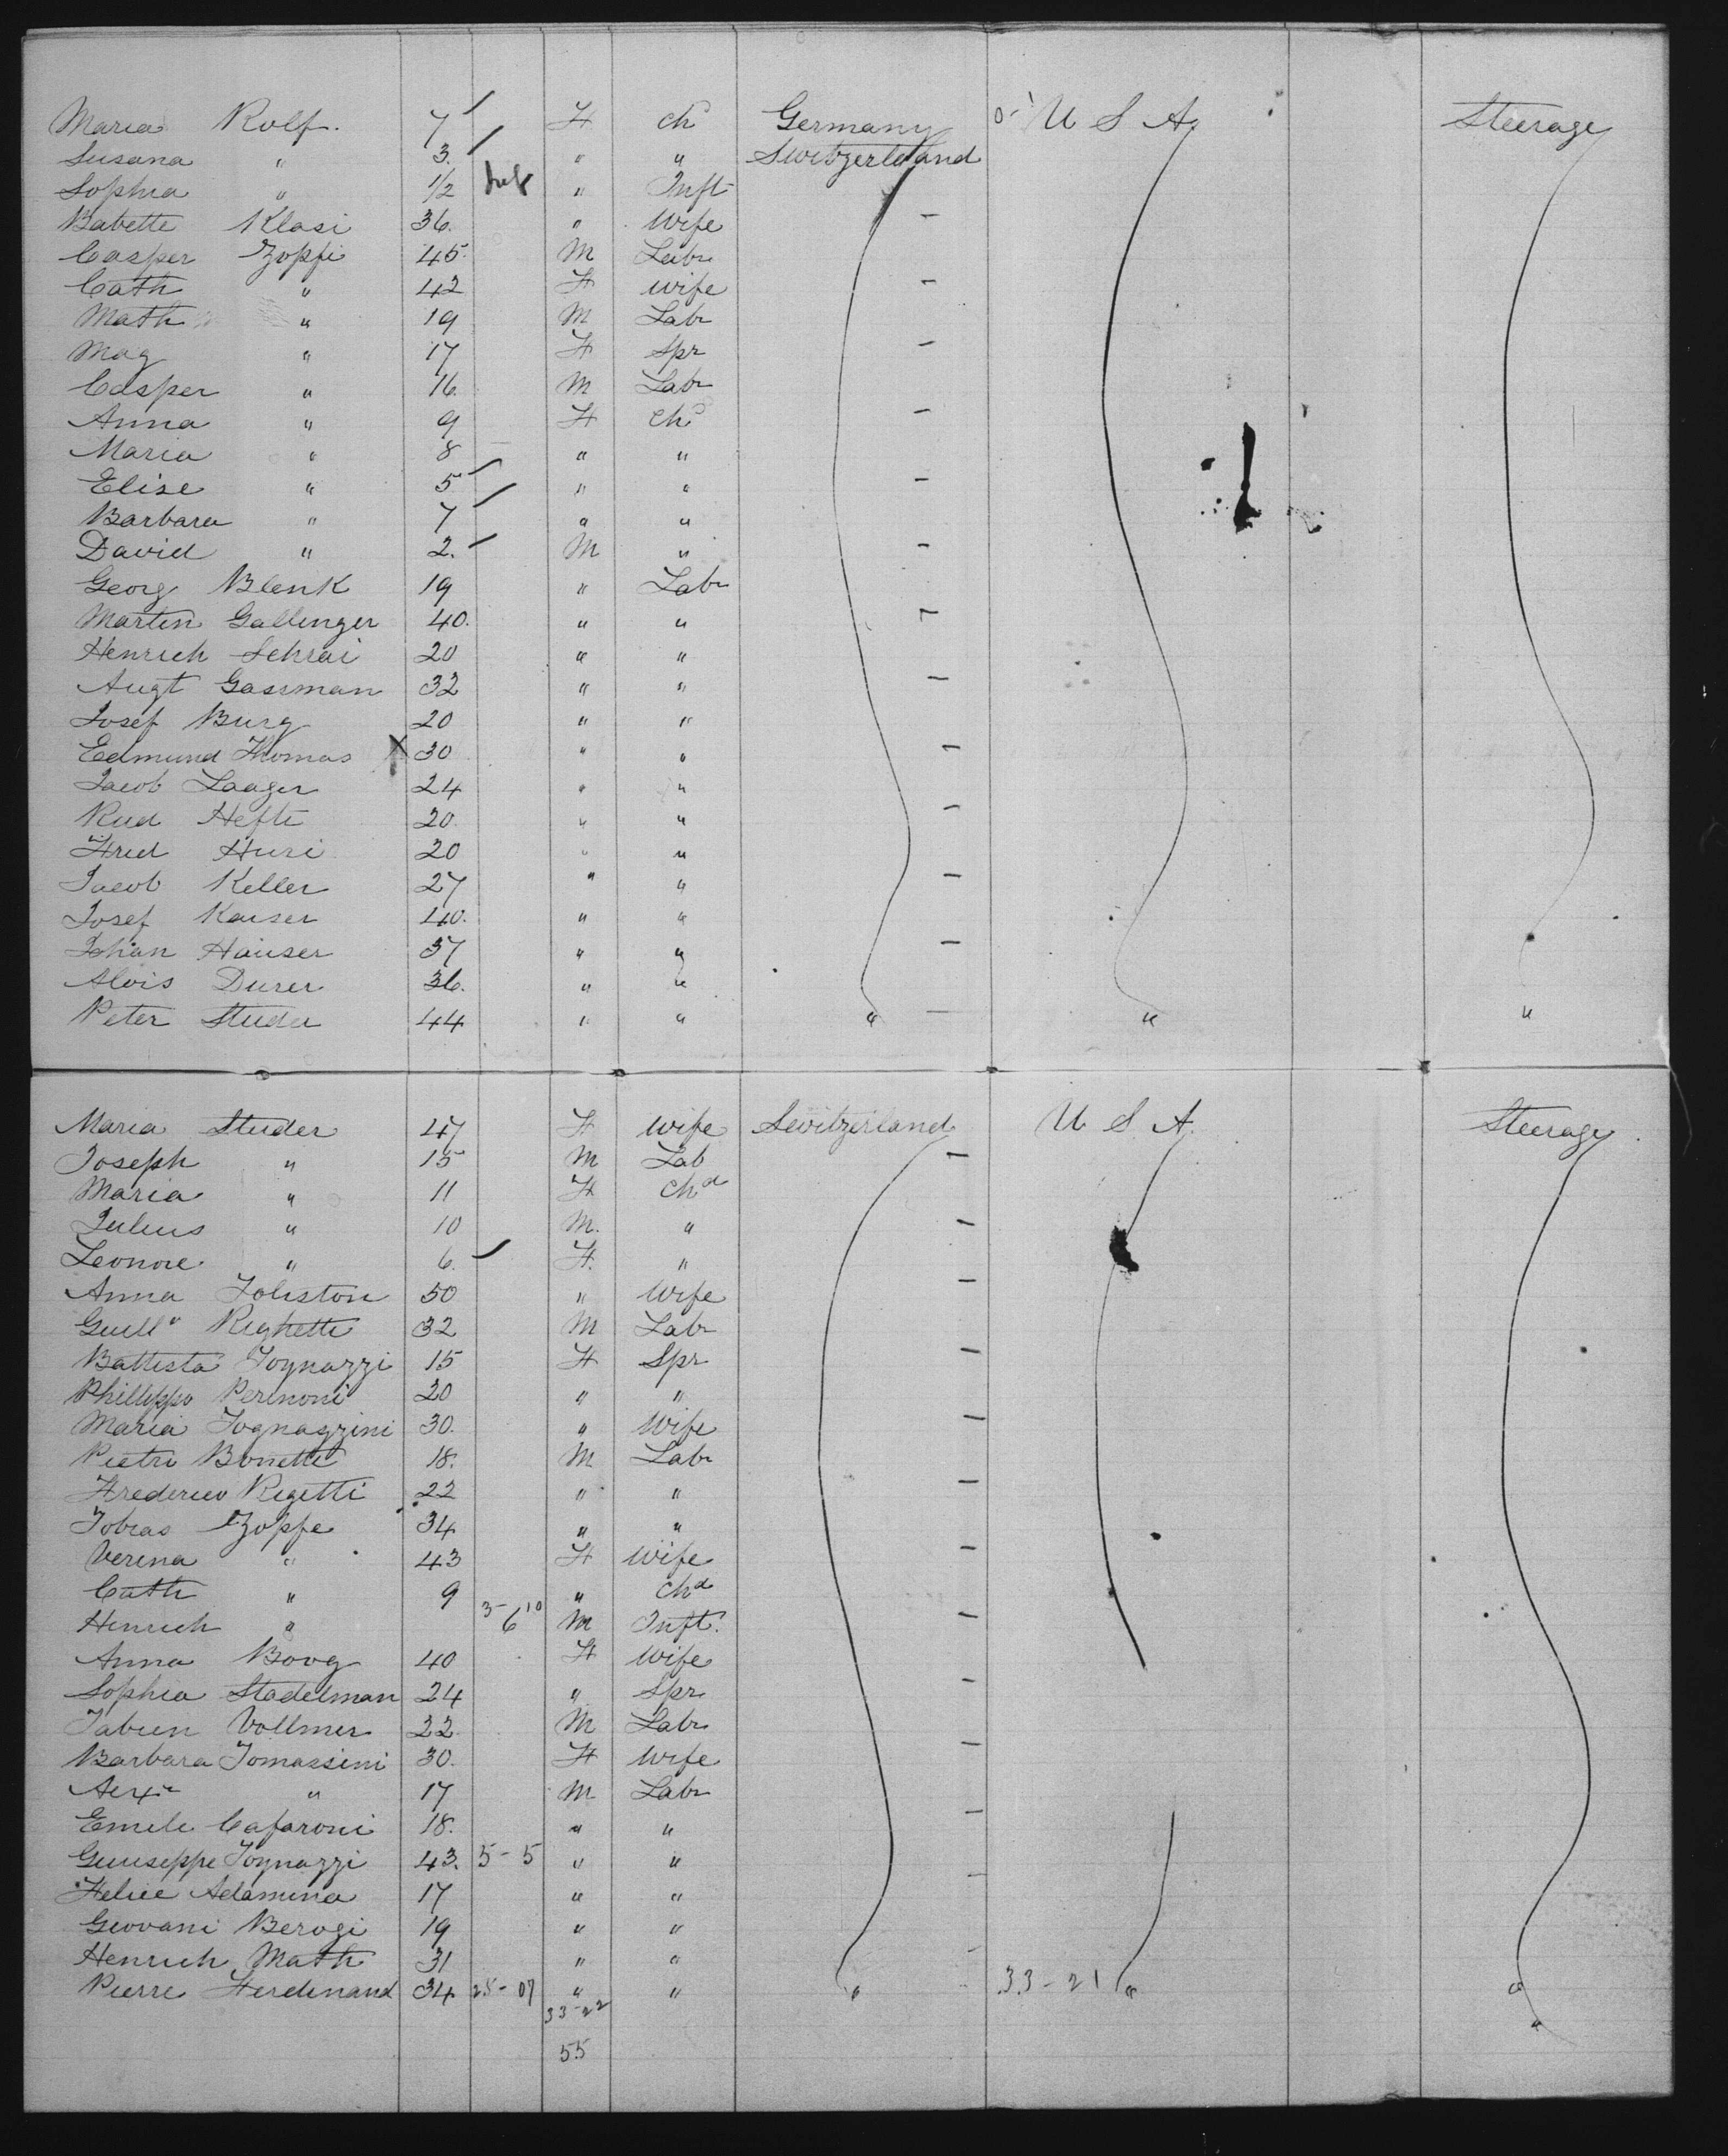 Maria Rolf. 7 F chd Germany U S A. Steerage
Susana " 3. " " Switzerland
Sophia " 1/2 " Inft
Babette Klasi 36. " Wife
Casper Zopfi 45. M Labr
Cath " 42 F wife
Math " 19 M Labr
Mag " 17 F Spr
Casper " 16 M Labr
Anna " 9 F chd
Maria " 8 " "
Elise " 5 " "
Barbara " 7 " "
David " 2. M "
Georg Blenk 19 " Labr
Martin Gallinger 40. " "
Henrich Schrai 20 " "
Augt Gassman 32 " "
Josef Burg 20 " "
Edmund Thomas X 30 " "
Jacob Laager 24 " "
Rud Hefti 20. " "
Fred Husi 20 " "
Jacob Keller 27 " "
Josef Kaiser 40. " "
Johan Hauser 37 " "
Alois Durer 36. " "
Peter Studer 44 " " " " "
Maria Studer 47 F wife Switzerland U S A. Steerage
Joseph " 15 M Lab
Maria " 11 F chd
Julius " 10 M. "
Leonore " 6. F. "
Anna Joliston 50 " Wife
Guill" Righetti 32 M Labr
Battista Tognazzi 15 F Spr
Phillippo Perinoni 20 " "
Maria Tognazzini 30. " Wife
Pietro Bonetti 18. M Labr
Frederico Rigetti 22 " "
Tobias Zopfe 34 " "
Verena " 43 F Wife
Cath " 9 " chd
Henrich " 3- 6 10 M Inft.
Anna Boog 40 F Wife
Sophia Stadelman 24 " Spr
Fabien Vollmer 22. M Labr
Barbara Tomassini 30. F Wife
" 17 M Labr
Emile Cafaroni 18. " "
Guiseppe Tognazzi 43. 5-5 " "
Felice Adamina 17 " "
Giovani Berogi 19 " "
Henrich Math 31 " "
Pierre Ferdinand 34 28-07 " " " 33-21 " "
33-22 "
55